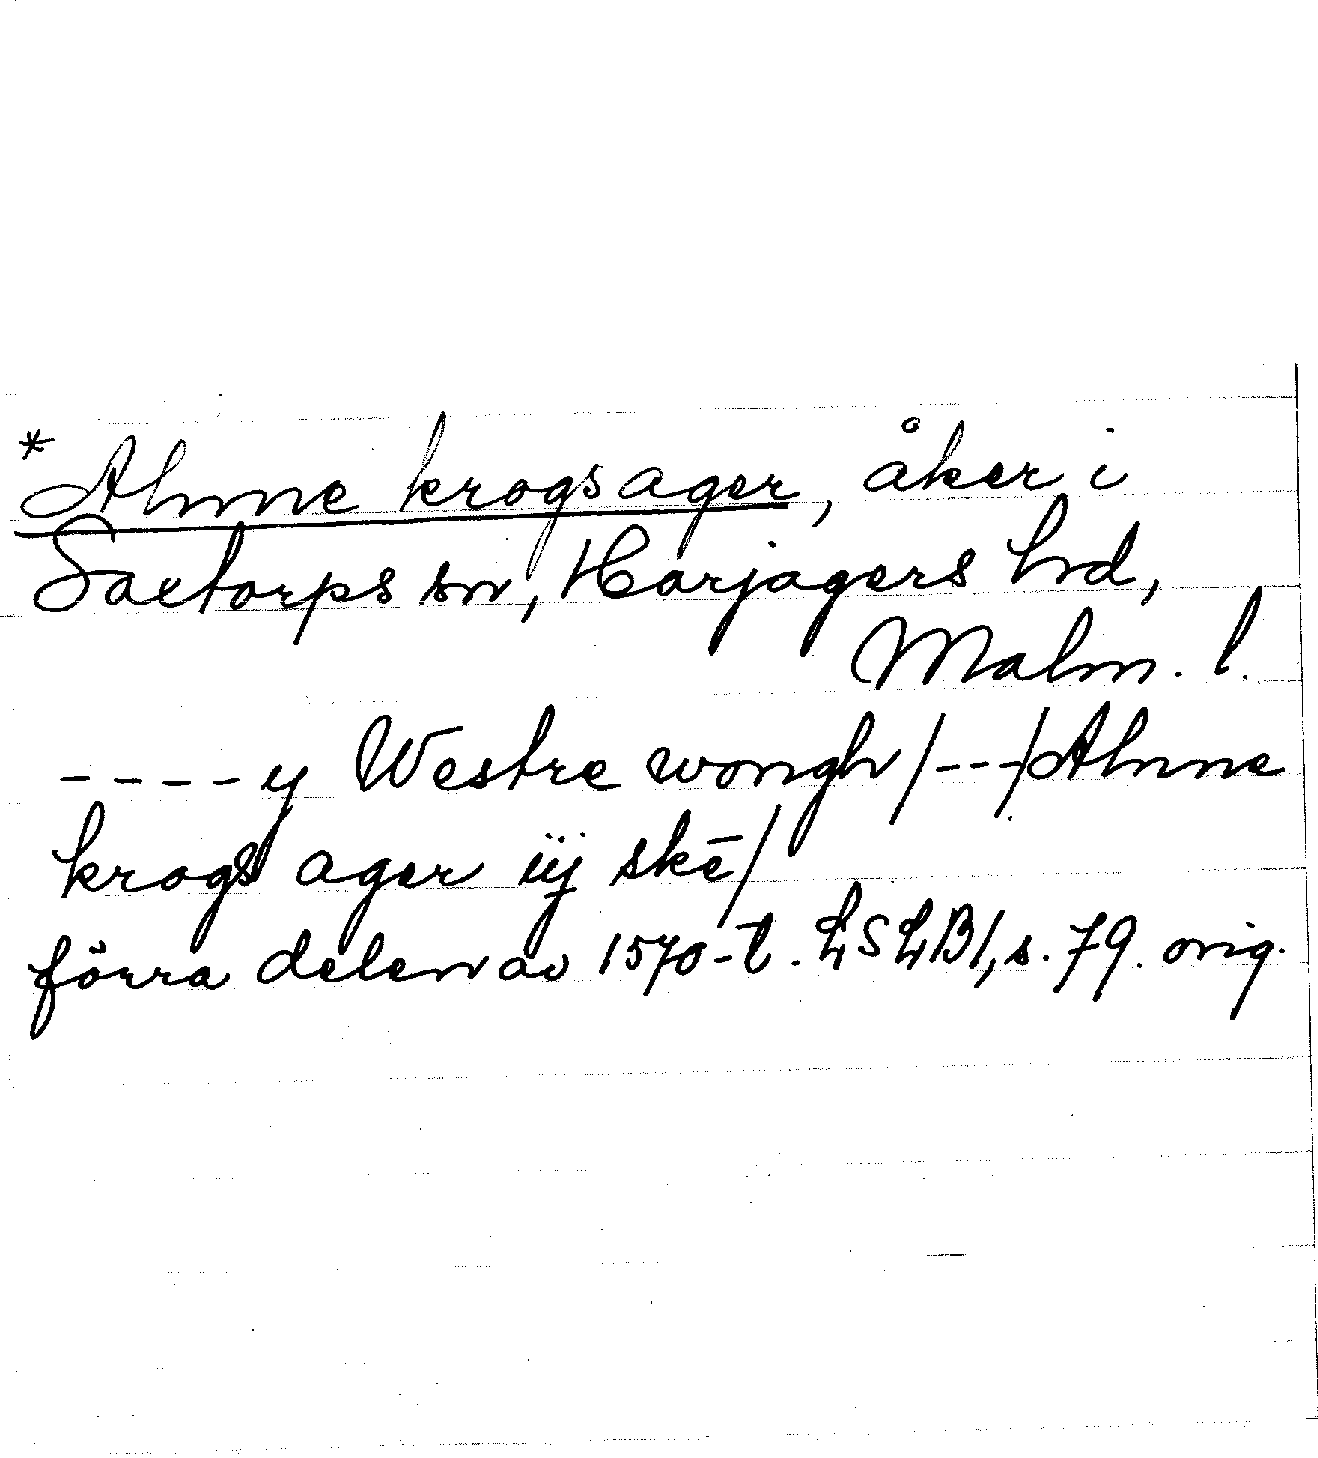 *Alnne krogsager, åker i
Saxtorps sn, Harjagers hrd,
Malm. l.
----y Westre wongh/---/Alnne
krogs ager iij skē/
förra delen av 1570-t. LSLB1, s. 79. orig.